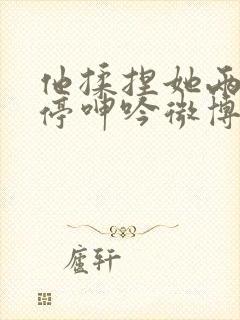 他揉捏她两
停呻吟微博
廬轩